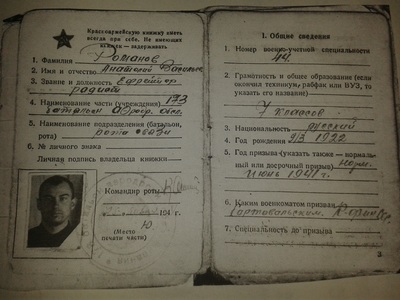 Красноармейскую книжку иметь
всегда при себе. Не имеющих
книжек — задерживать
1. Фамилия Романов
2. Имя и отчество Анатолий
3. Звание и должность Ефрейтор
радист
4. Наименование части (учреждения) 173
батальон
5. Наименование подразделения (батальон,
рота) рота связи
6. № личного знака
Личная подпись владельца книжки
Командир роты
194 г.
(Место
печати части)
I. Общие сведения
1. Номер военно-учетной специальности
44.
2. Грамотность и общее образование (если
окончил техникум, рабфак или ВУЗ, то
указать его название)
7 классов
3. Национальность русский
4. Год рождения 1922
5. Год призыва (указать также — нормаль-
ный или досрочный призыв) Норм.
Июнь 1941 г.
6. Каким военкоматом призван
Сортавальским
7. Специальность до призыва
3